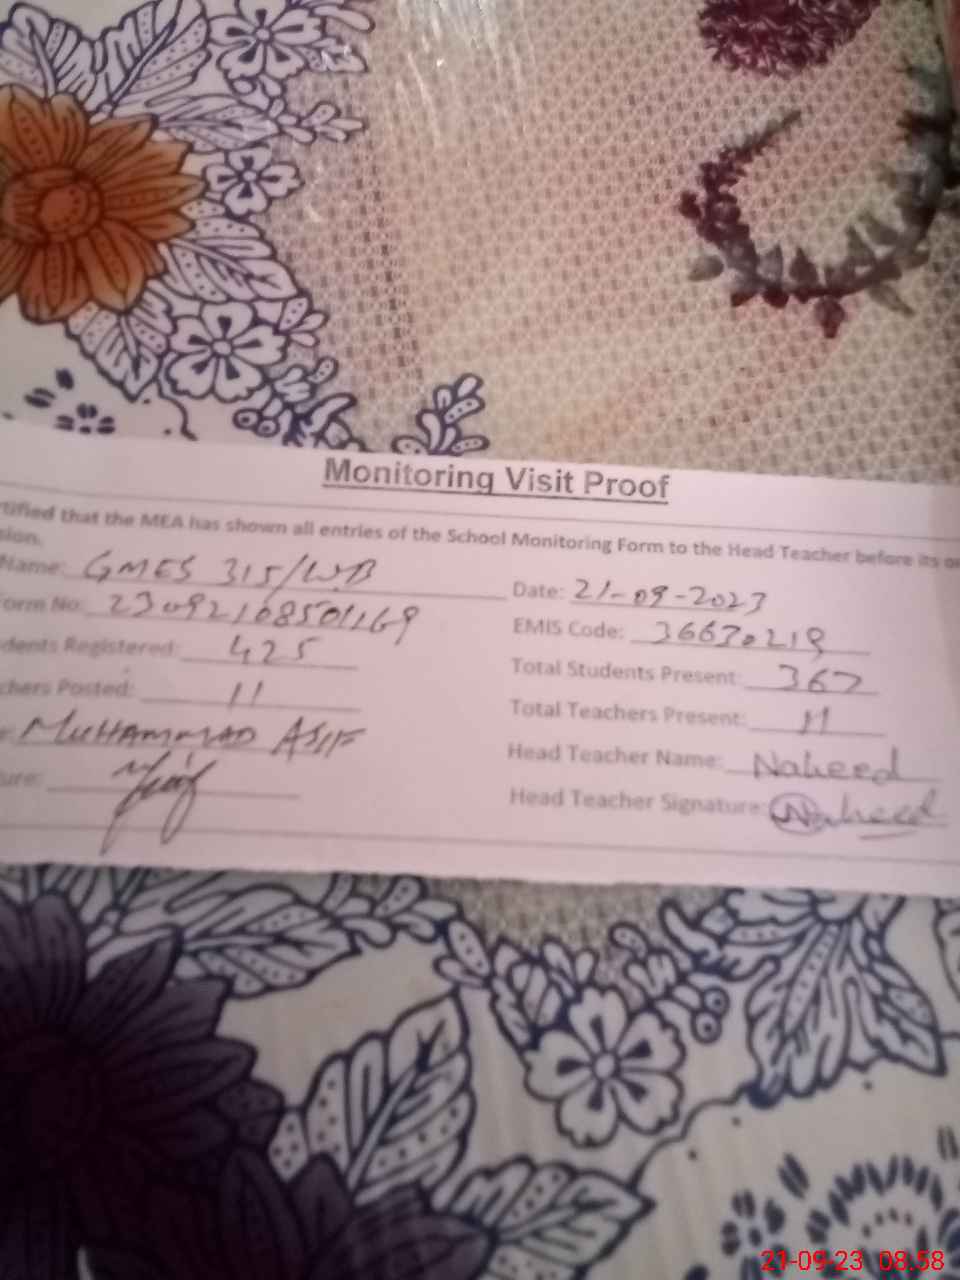 Monitoring Visit Proof
rtified that the MEA has shown all entries of the School Monitoring Form to the Head Teacher before its
sion.
Name: GMES 315/WB Date: 21-09-2023
orm No: 23092108501169 EMIS Code: 36630218
dents Registered: 425 Total Students Present: 367
chers Posted: 11 Total Teachers Present: 11
MUHAMMAD ASIF Head Teacher Name: Naheed
ure: Head Teacher Signature: Naheed
21-09-23 08.58